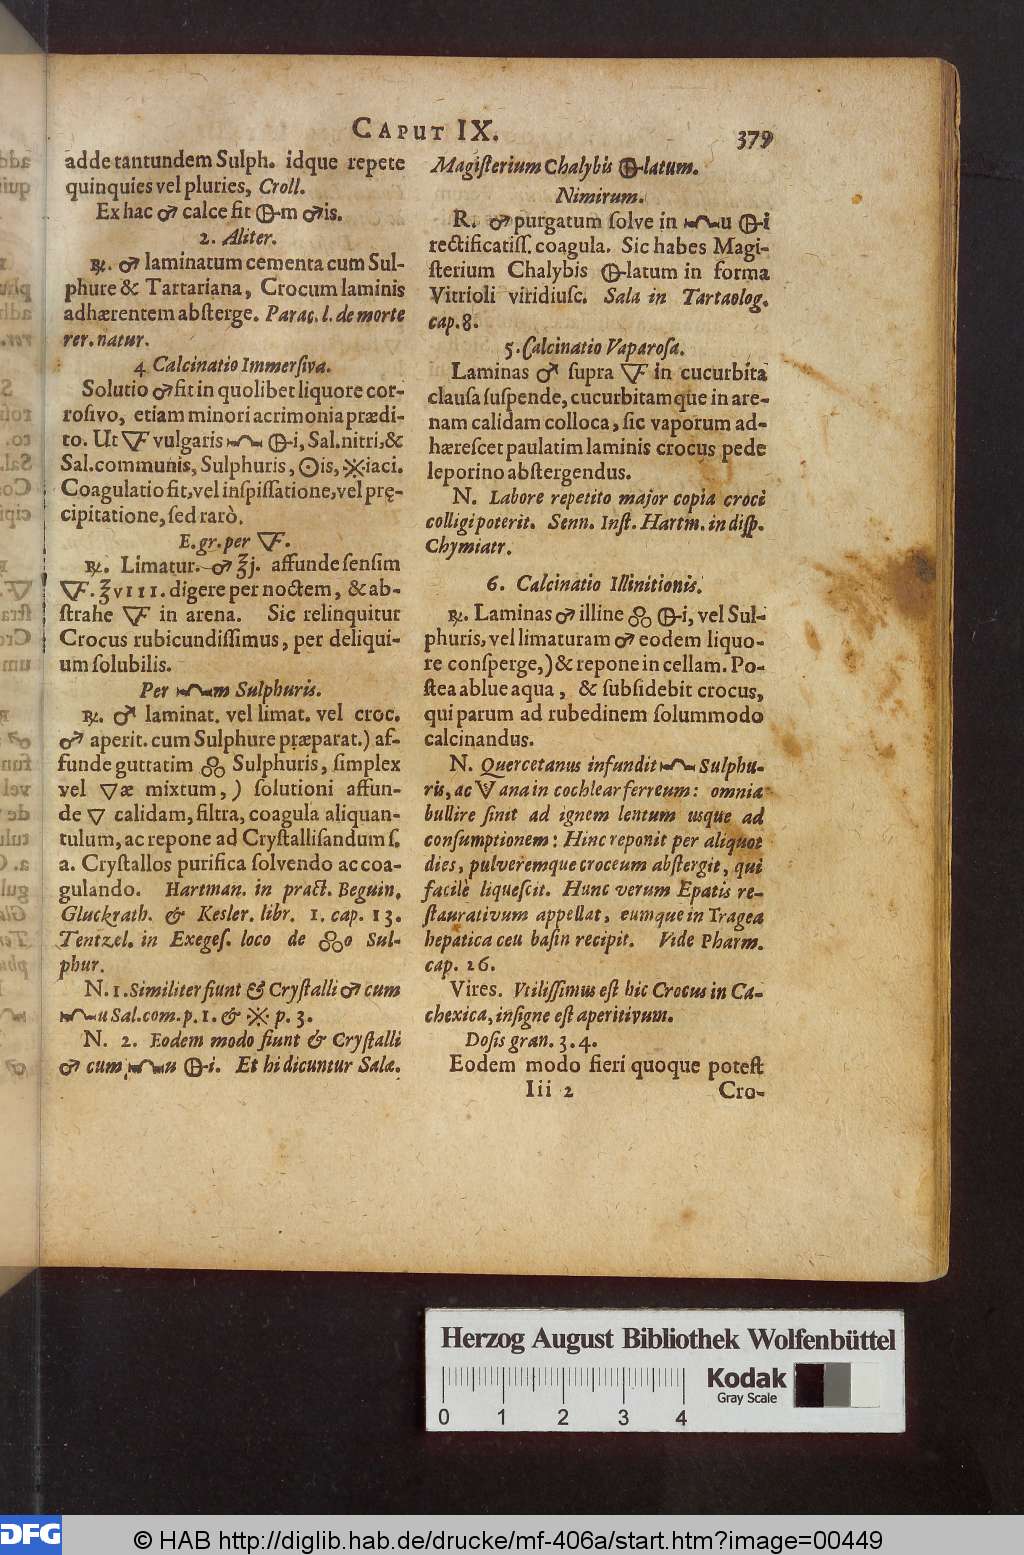 CAPUT IX.
379
adde tantundem Sulph. idque repete
quinquies vel pluries, Croll.
Ex hac ♂ calce fit 🜖-m ♂is.
2. Aliter.
℞. ♂ laminatum cementa cum Sul-
phure & Tartariana, Crocum laminis
adhærentem abſterge. Parac. l. de morte
rer. natur.
4 Calcinatio Immerſiva.
Solutio ♂ fit in quolibet liquore cor-
roſivo, etiam minori acrimonia prædi-
to. Ut 🜅 vulgaris 🝭 🜖-i, Sal. nitri, &
Sal. communis, Sulphuris, ☉is, ※iaci.
Coagulatio fit, vel inſpiſſatione, vel prę-
cipitatione, ſed rarò.
E. gr. per 🜅.
℞. Limatur. ♂ ℥j. affunde ſenſim
🜅. ℥VIII. digere per noctem, & ab-
ſtrahe 🜅 in arena. Sic relinquitur
Crocus rubicundiſſimus, per deliqui-
um ſolubilis.
Per 🝭m Sulphuris.
℞. ♂ laminat. vel limat. vel croc.
♂ aperit. cum Sulphure præparat.) af-
funde guttatim 🝆 Sulphuris, ſimplex
vel 🜄æ mixtum, ) ſolutioni affun-
de 🜄 calidam, filtra, coagula aliquan-
tulum, ac repone ad Cryſtalliſandum ſ.
a. Cryſtallos purifica ſolvendo ac coa-
gulando. Hartman. in pract. Beguin.
Gluckrath. & Kesler. libr. 1. cap. 13.
Tentzel. in Exegeſ. loco de 🝆o Sul-
phur.
N. 1. Similiter fiunt & Cryſtalli ♂ cum
🝭u Sal. com. p. 1. & ※ p. 3.
N. 2. Eodem modo fiunt & Cryſtalli
♂ cum 🝭u 🜖-i. Et hi dicuntur Salæ.
Magiſterium Chalybis 🜖-latum.
Nimirum.
R. ♂ purgatum ſolve in 🝭u 🜖-i
rectificatiſſ. coagula. Sic habes Magi-
ſterium Chalybis 🜖-latum in forma
Vitrioli viridiuſc. Sala in Tartaolog.
cap. 8.
5. Calcinatio Vaparoſa.
Laminas ♂ ſupra 🜅 in cucurbita
clauſa ſuſpende, cucurbitamque in are-
nam calidam colloca, ſic vaporum ad-
hæreſcet paulatim laminis crocus pede
leporino abſtergendus.
N. Labore repetito major copia croci
colligi poterit. Senn. Inſt. Hartm. in diſp.
Chymiatr.
6. Calcinatio Illinitionis.
℞. Laminas ♂ illine 🝆 🜖-i, vel Sul-
phuris, vel limaturam ♂ eodem liquo-
re conſperge,) & repone in cellam. Po-
ſtea ablue aqua, & ſubſidebit crocus,
qui parum ad rubedinem ſolummodo
calcinandus.
N. Quercetanus infundit 🝭 Sulphu-
ris, ac 🜊 ana in cochlear ferreum: omnia
bullire ſinit ad ignem lentum usque ad
conſumptionem: Hinc reponit per aliquot
dies, pulveremque croceum abſtergit, qui
facilè liqueſcit. Hunc verum Epatis re-
ſtaurativum appellat, eumque in Tragea
hepatica ceu baſin recipit. Vide Pharm.
cap. 26.
Vires. Utiliſſimus eſt hic Crocus in Ca-
chexica, inſigne eſt aperitivum.
Doſis gran. 3. 4.
Eodem modo fieri quoque poteſt
Iii 2
Cro-
Herzog August Bibliothek Wolfenbüttel
0 1 2 3 4
Kodak
Gray Scale
DFG
© HAB http://diglib.hab.de/drucke/mf-406a/start.htm?image=00449